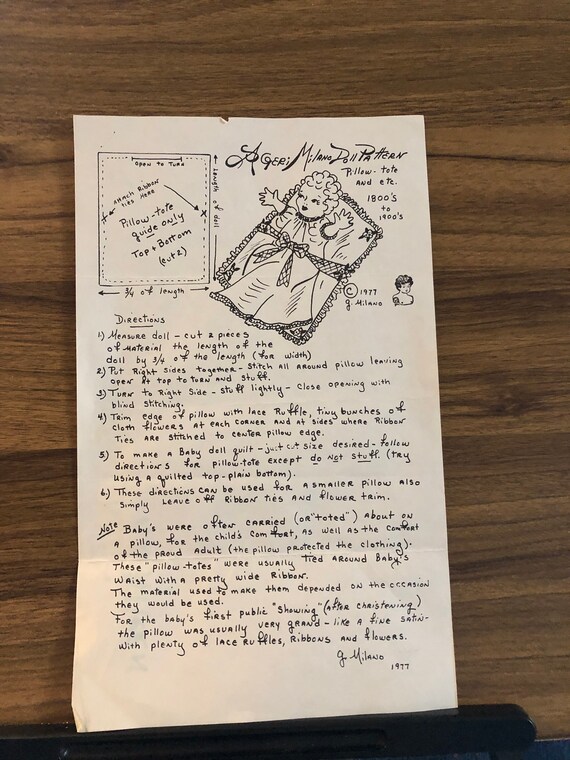 A Geri Milano Doll Pattern
Pillow-tote
and etc.
1800's
to
1900's
Open to Turn
Attach Ribbon
ties Here
Pillow-tote
guide only
Top + Bottom
(cut 2)
length of doll
3/4 of length
© 1977
G. Milano
Directions
1) Measure doll - cut 2 pieces
of material the length of the
doll by 3/4 of the length (for width)
2) Put Right Sides together - stitch all around pillow leaving
open at top to turn and stuff.
3) Turn to Right Side - stuff lightly - close opening with
blind stitching.
4) Trim edge of pillow with lace Ruffle, tiny bunches of
cloth flowers at each corner and at sides where Ribbon
Ties are stitched to center pillow edge.
5) To make a Baby doll quilt - just cut size desired - follow
directions for pillow-tote except do not stuff. (try
using a quilted top - plain bottom).
6.) These directions can be used for a smaller pillow also
simply leave off Ribbon ties and flower trim.
Note Baby's were often carried (or "toted") about on
a pillow, for the child's comfort, as well as the comfort
of the proud Adult (the pillow protected the clothing).
These "pillow-totes" were usually tied around Baby's
waist with a pretty wide Ribbon.
The material used to make them depended on the occasion
they would be used.
For the baby's first public "showing" (after christening)
the pillow was usually very grand - like a fine satin -
with plenty of lace Ruffles, Ribbons and flowers.
G. Milano
1977